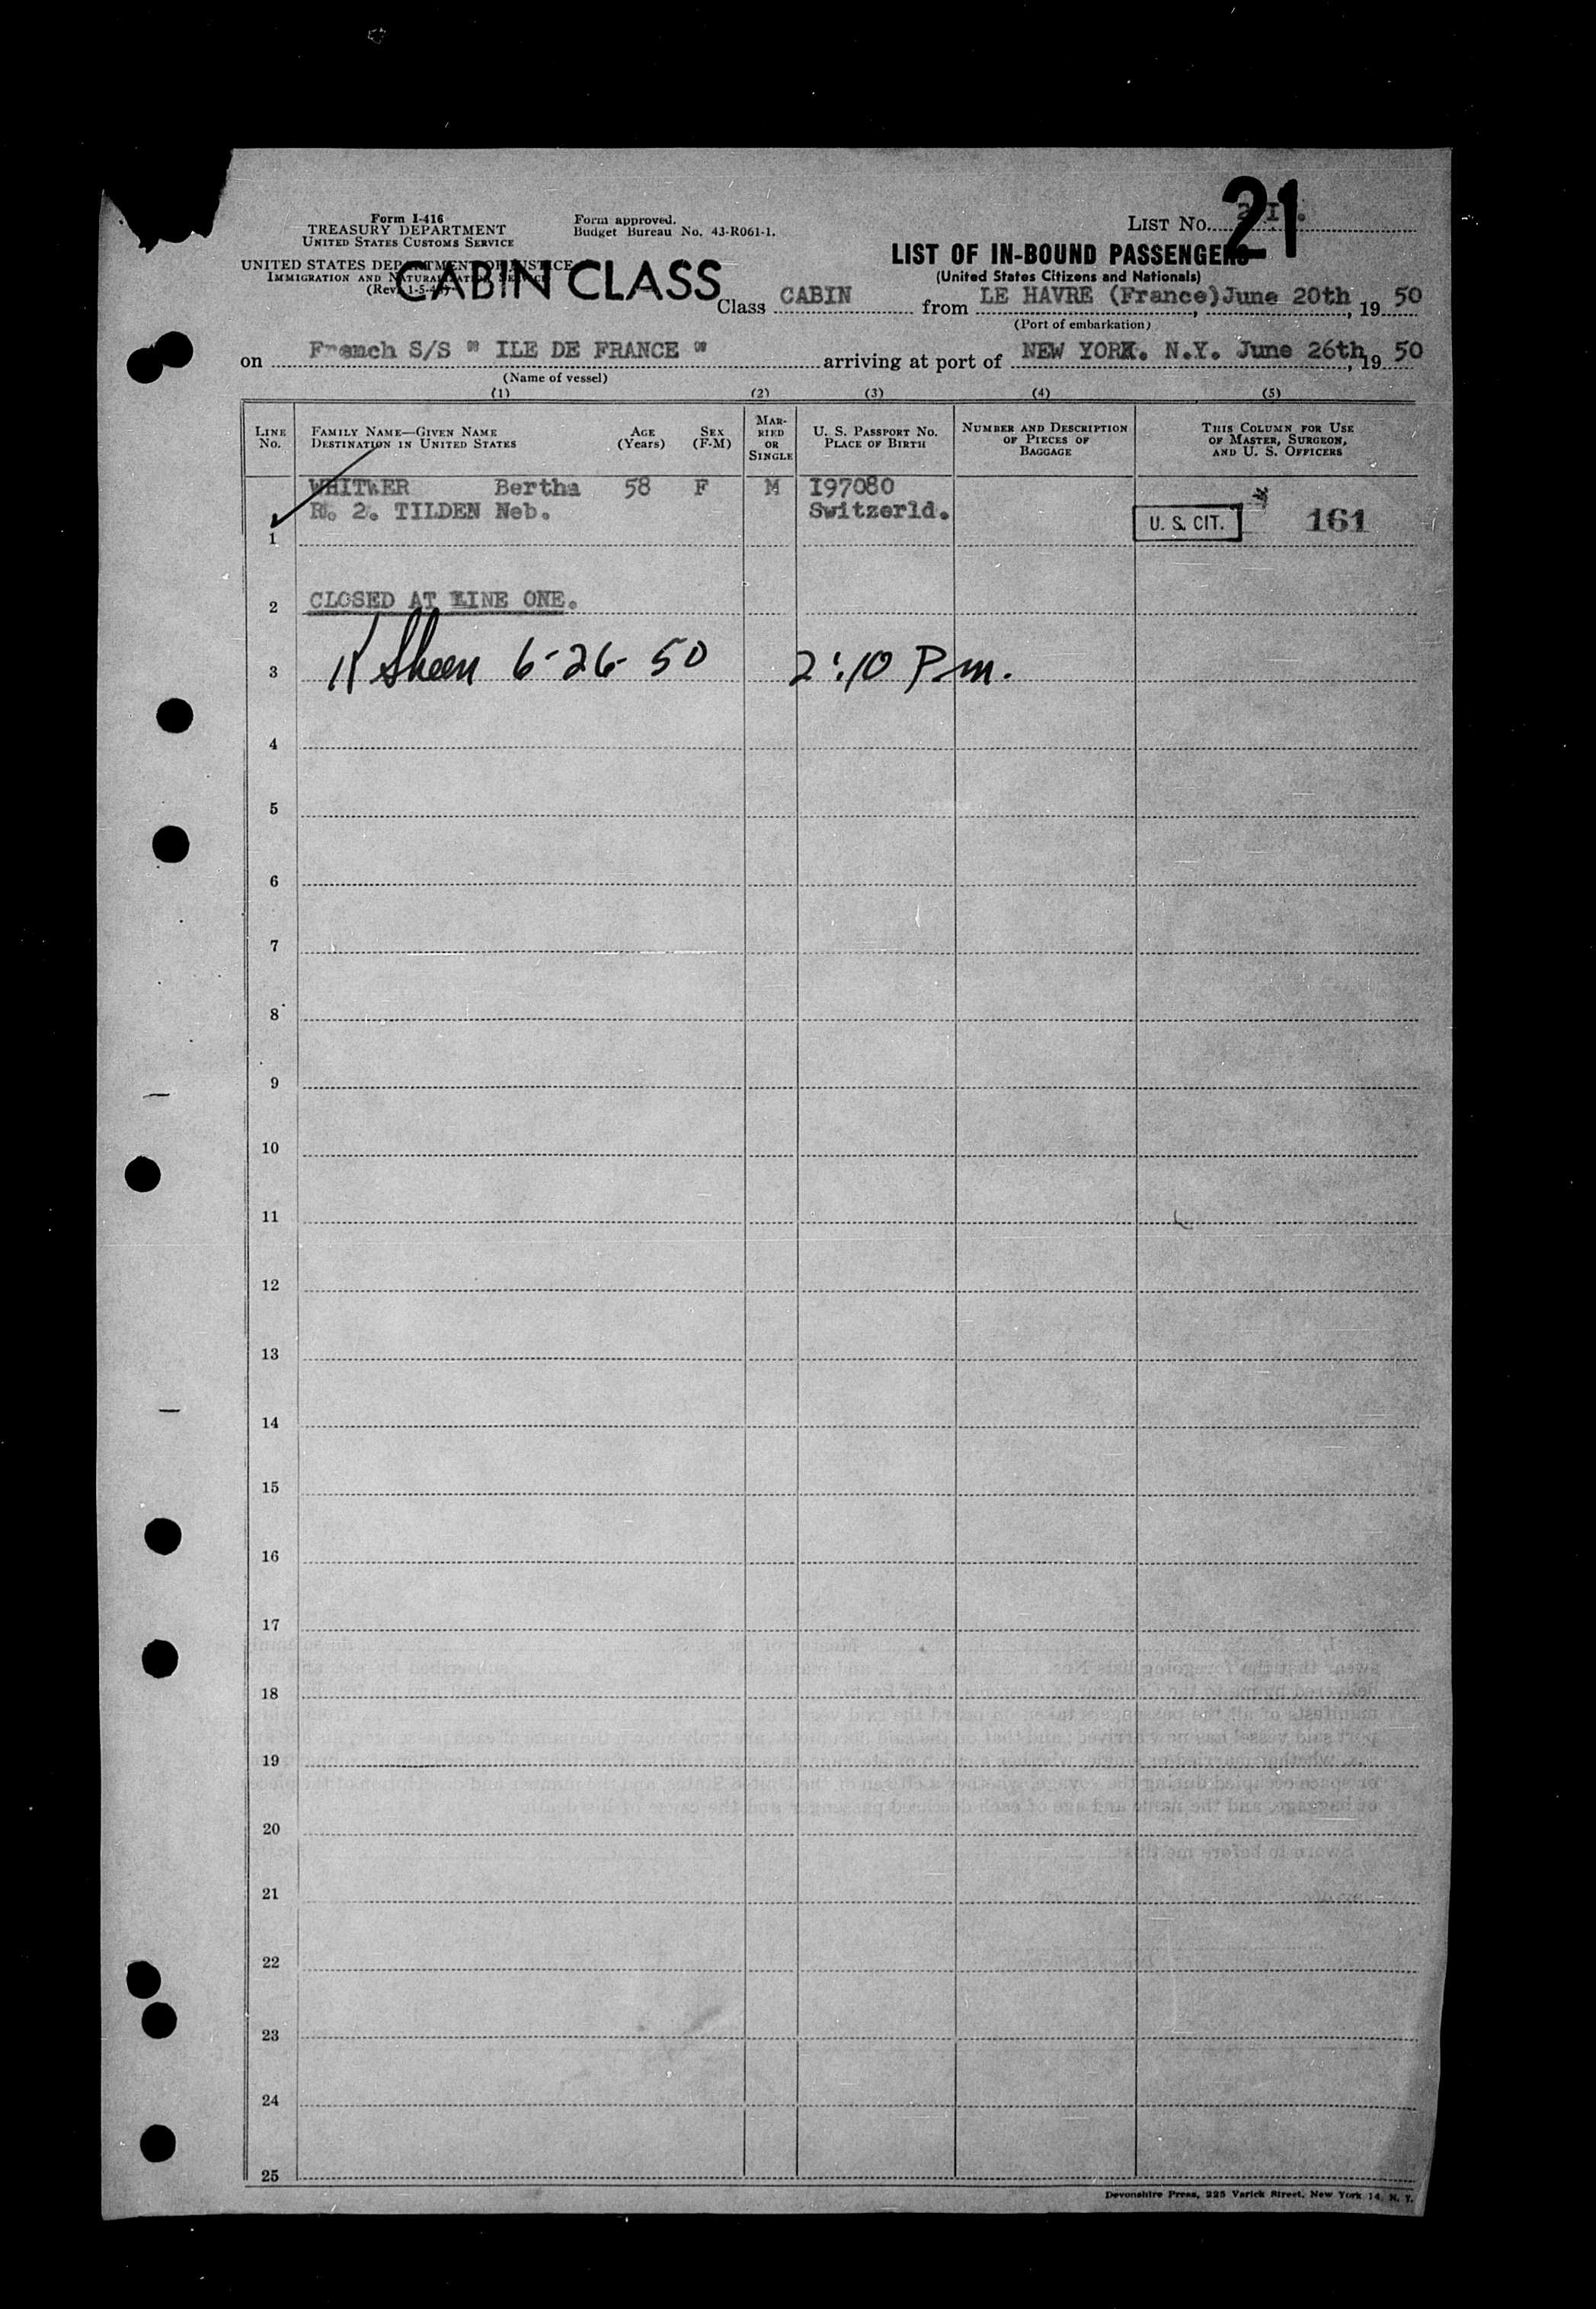 Form I-416
TREASURY DEPARTMENT
UNITED STATES CUSTOMS SERVICE
UNITED STATES DEPARTMENT OF JUSTICE
IMMIGRATION AND NATURALIZATION SERVICE
Form approved.
Budget Bureau No. 43-R061-1.
CABIN CLASS
LIST No. 21
LIST OF IN-BOUND PASSENGERS
(United States Citizens and Nationals)
Class CABIN from LE HAVRE (France), June 20th, 19 50
(Port of embarkation)
on French S/S " ILE DE FRANCE " arriving at port of NEW YORK. N.Y. June 26th, 19 50
(Name of vessel)
(1) (2) (3) (4) (5)
LINE No. FAMILY NAME—GIVEN NAME DESTINATION IN UNITED STATES AGE (Years) SEX (F-M) MARRIED OR SINGLE U. S. PASSPORT No. PLACE OF BIRTH NUMBER AND DESCRIPTION OF PIECES OF BAGGAGE THIS COLUMN FOR USE OF MASTER, SURGEON, AND U. S. OFFICERS
WHITWER Bertha 58 F M I97080
R. 2. TILDEN Neb. Switzerld.
1 U. S. CIT. 161
2 CLOSED AT LINE ONE.
3 Sheen 6-26-50 2:10 P.m.
4
5
6
7
8
9
10
11
12
13
14
15
16
17
18
19
20
21
22
23
24
25
Devonshire Press, 225 Varick Street, New York 14, N. Y.